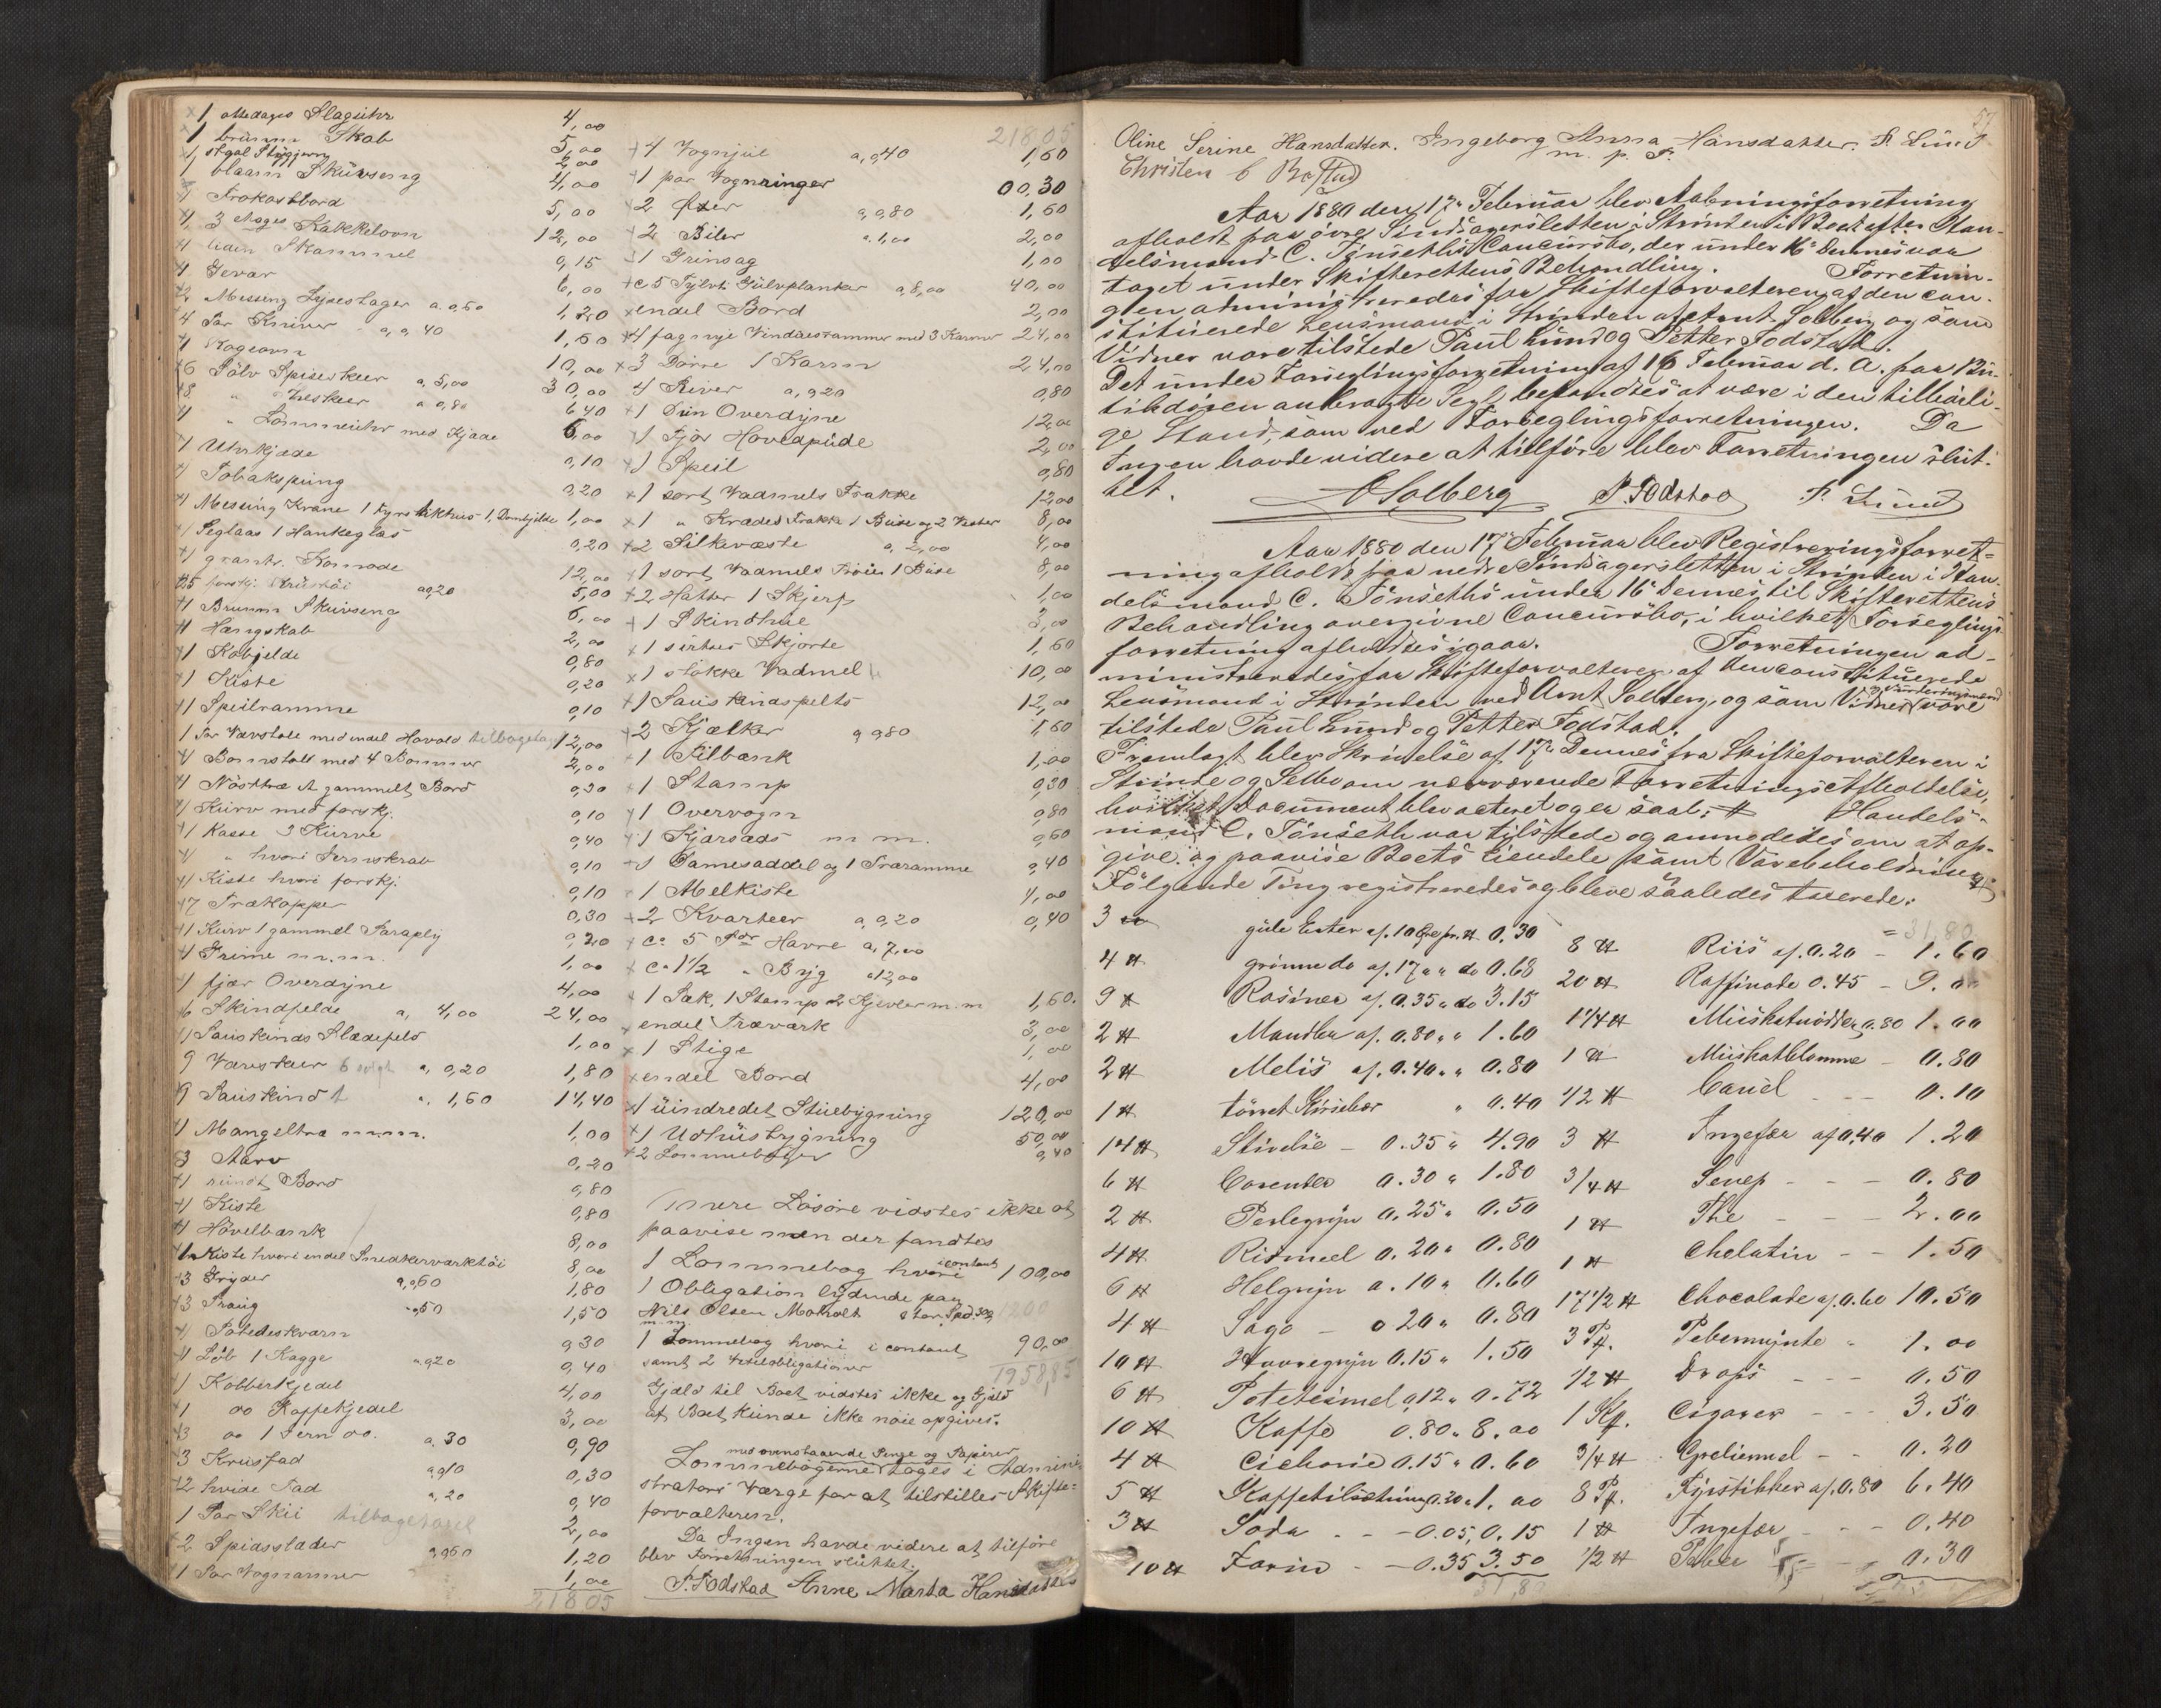 1 ottedages Slaguhr 4,00
1 bruunn Skab 5,00
1 2,00
1 blaam Skuvseng 4,00
1 Frokostbord 5,00
1 3 Etages Kakkelovn 12,00
1 liden Skammel 0,15
1 Gevær 6,00
2 Messing Lysestager a 0,60 1,20
4 Par Kniver a 0,40 1,60
1 Kogeovn 10,00
6 Sølv Spiseskeer a 5,00 30,00
8 " Theskeer a 0,80 6,40
1 " Lommeuhr med Kjæde 6,00
1 Uhrkjæde 0,10
1 Tobakspung 0,20
1 Messing Krane 1 Fyrstikhus 1, Dombjelde 1,00
1 Seglaas 1 Hankeglas 0,20
1 Komode 12,00
25 forskj. Krustøi a 0,20 5,00
1 Bruunn Skuvseng 6,00
1 Hængskab 2,00
1 Kobjelde 0,80
1 Kiste 0,20
1 Speilramme 0,10
1 Par Vævstole med endel Havold tilbagetag 12,00
1 Bomstoll med 4 Bommer 2,00
1 Nøsttræ et gammelt Bord 0,30
1 Kurv med forskj. 0,10
1 Kasse 3 Kurve 0,40
1 " hvori Jernskrab 0,10
1 Kiste hvori forskj. 0,10
7 Trækopper 0,30
1 Kurv 1 gammel Paraply 0,20
1 Grime m.m. 1,00
1 fjær Overdyne 4,00
6 Skindfelde a, 4,00 24,00
1 Sauskinds Slædefeld 1,00
9 Væreskeer a, 0,20 1,80
9 Sauskind a, 1,60 14,40
1 Mangeltræ m.m. 1,00
3 Aarer 0,20
1 rundt Bord 0,80
1 Kiste 0,80
1 Høvelbænk 8,00
1 Kiste hvori endel Snedkerværktøi 8,00
3 Gryder a, 0,60 1,80
3 Traug - 0,50 1,50
1 Poteteskværn 0,30
1 Løb 1 Kagge a 0,20 0,40
1 Kobberkjedel 4,00
1 do Kaffekjedel 3,00
3 do 1 Jern do. a. 30 0,90
3 Krusfad a 0,10 0,30
2 hvide Fad a, 20 0,40
1 Par Skii tilbagetaget 2,00
2 Spidsslæder a, 0,60 1,20
1 Par Vognarmer 1,00
218 05
218,05
4 Vognhjul a, 0,40 1,60
1 par Vognringer 00,30
2 Øxer a, 0,80 1,60
2 Biler a. 1,00 2,00
1 Grinsag 1,00
c 5 Tylvt Gulvplanker a, 8,00 40,00
endel Bord 2,00
4 fag nye Vinduesrammer med 3 Karmer 24,00
3 Dørre 1 Karm 24,00
4 River a, 0,20 0,80
1 Dun Overdyne 12,00
1 Fjør Hovedpude 2,00
1 Speil 0,80
1 sort Vadmels Frakke 12,00
1 " Klædes Frakke 1 Buxe og 2 Vester 8,00
2 Silkevæste a, 2,00 4,00
1 sort Vadmels Trøie 1 Buxe 8,00
2 Hatter 1 Skjerf 1,00
1 Skindhue 3,00
1 sirtses Skjorte 1,60
1 støkke Vadmel 10,00
1 Sauskindspelts 12,00
2 Kjælker a 0,80 1,60
1 Filbænk 1,00
1 Stamp 0,30
1 Overvogn 0,80
1 Kjørsads m m. 0,60
1 Damesaddel og 1 Træramme 0,40
1 Melkiste 4,00
2 Kvarteer a, 0,20 0,40
ca 5 Tdr Havre a, 7,00
ca 1½ " Byg a 12,00
1 Sæk, 1 Stamp 2 Kjevler m.m 1,60.
endel Træværk 3,00
1 Stige 1,00
endel Bord 4,00
1 uindredet Stuebygning 120,00
1 Udhusbygning 50,00
2 Lommebøger 0,40
mere Løsøre vidstes ikke at
paavise men der fandtes
1 Lommebog hvori i contant 100,00
1 Obligation lydende paa
Nils Olsen Moholt stor Spd. 300 1200
m.m.
1 Lommebog hvori i contant 90,00
samt 2 Vexelobligationer 1958,85
Gjæld til Boet vidstes ikke og Gjæld
af Boet kunde ikke nøie opgives.
med ovenstaaende Penge og Papirer
Lommebøgerne tages i Admini-
strators Værge for at tilstilles Skifte-
forvalteren.
Da Ingen havde videre at tilføre
blev Forretningen sluttet.
P. Fodstad Anne Marta Hansdatter
57
Oline Serine Hansdatter. Ingeborg Anna Hansdatter. P. Lund
m. p. P.
Christen
Aar 1880 den 17de Februar blev Aabningsforretning
afholdt paa øvre Sundsagersletten i Strinden i Boet efter Han-
delsmand C. Tønseths Concursbo, der under 16de Dennes var
taget under Skifterettens Behandling. Forretnin-
gen administreredes for Skifteforvalteren af den con-
stituerede Lensmand i Strinden Arnt Solberg og som
Vidner vare tilstede Paul Lund og Petter Fodstad.
Det under Forseglingsforretning af 16 Februar d. A. paa Bu-
tikdøren anbragte Segl befandtes at være i den tilbørli-
ge Stand, som ved Forseglingsforretningen. Da
Ingen havde videre at tilføre blev Forretningen slut-
tet.
A Solberg P. Fodstad P. Lund
Aar 1880 den 17de Februar blev Registreringsforret-
ning afholdt paa nedre Sundsagersletten i Strinden i Han-
delsmand C. Tønseths under 16de Dennes til Skifterettens
Behandling overgivne Concursbo, i hvilket Forseglings-
forretning afholdtes igaar. Forretningen ad-
ministreredes for Skifteforvalteren af den constituerede
Lensmand i Strinden ved Arnt Solberg, og som Vidner og Vurderingsmænd vare
tilstede Paul Lund og Petter Fodstad.
Fremlagt blev Skrivelse af 17de Dennes fra Skifteforvalteren i
Strinde og Selbo om nærværende Forretnings Afholdelse,
hvilket Document blev acteret og er saal: # Handels-
mand C. Tønseth var tilstede og anmodedes om at op-
give og paavise Boets Eiendele samt Varebeholdning
Følgende Ting registreredes og bleve saaledes taxerede:
= 31,80
3 gule Erter af. 10 Øre pr. ℔ 0.30
4 ℔ grønne do af. 17 " " do 0.68
9 ℔ Rosiner af. 0.35 " do 3.15
2 ℔ Mandler af. 0.80 " " 1.60
2 ℔ Melis af. 0.40 " " 0.80
1 ℔ tørret Kirsebær " 0.40
14 ℔ Stivelse - 0.35 " 4.90
6 ℔ Corender 0.30 " 1.80
2 ℔ Perlegryn 0.25 " 0.50
4 ℔ Rismeel 0.20 " 0.80
6 ℔ Helgryn 0.10 " 0.60
4 ℔ Sago - 0 20 " 0.80
10 ℔ Havregryn 0.15 " 1.50
6 ℔ Potetesmel 0,12 " 0.72
10 ℔ Kaffe 0.80 " 8.00
4 ℔ Cichorie 0.15 " 0.60
5 ℔ Kaffetilsetning 0.20 " 1.00
3 ℔ Soda - - 0.05, 0.15
10 ℔ Farin - - 0.35 3.50
8 ℔ Riis af. 0.20 - 1.60
20 ℔ Raffinade 0.45 - 9.00
1¼ ℔ Muskatnødder 0.80 1.00
1 ℔ Muskatblomme - 0.80
½ ℔ Canel - - 0.10
3 ℔ Ingefær af 0.40 1.20
¾ ℔ Senep - - - 0.80
1 ℔ The - - - 2.00
1 ℔ Chelatin - - 1.50
17½ ℔ Chocolade af. 0.60 10.50
3 Pk. Pebermynte " 1.00
½ ℔ Drops - - - 0.50
1 Kp. Cigarer - - - 3.50
¾ ℔ - - 0.20
8 Pk. Fyrstikker af. 0.80 6.40
1 ℔ Ingefær - - - 0.40
½ ℔ Peber - - 0.30